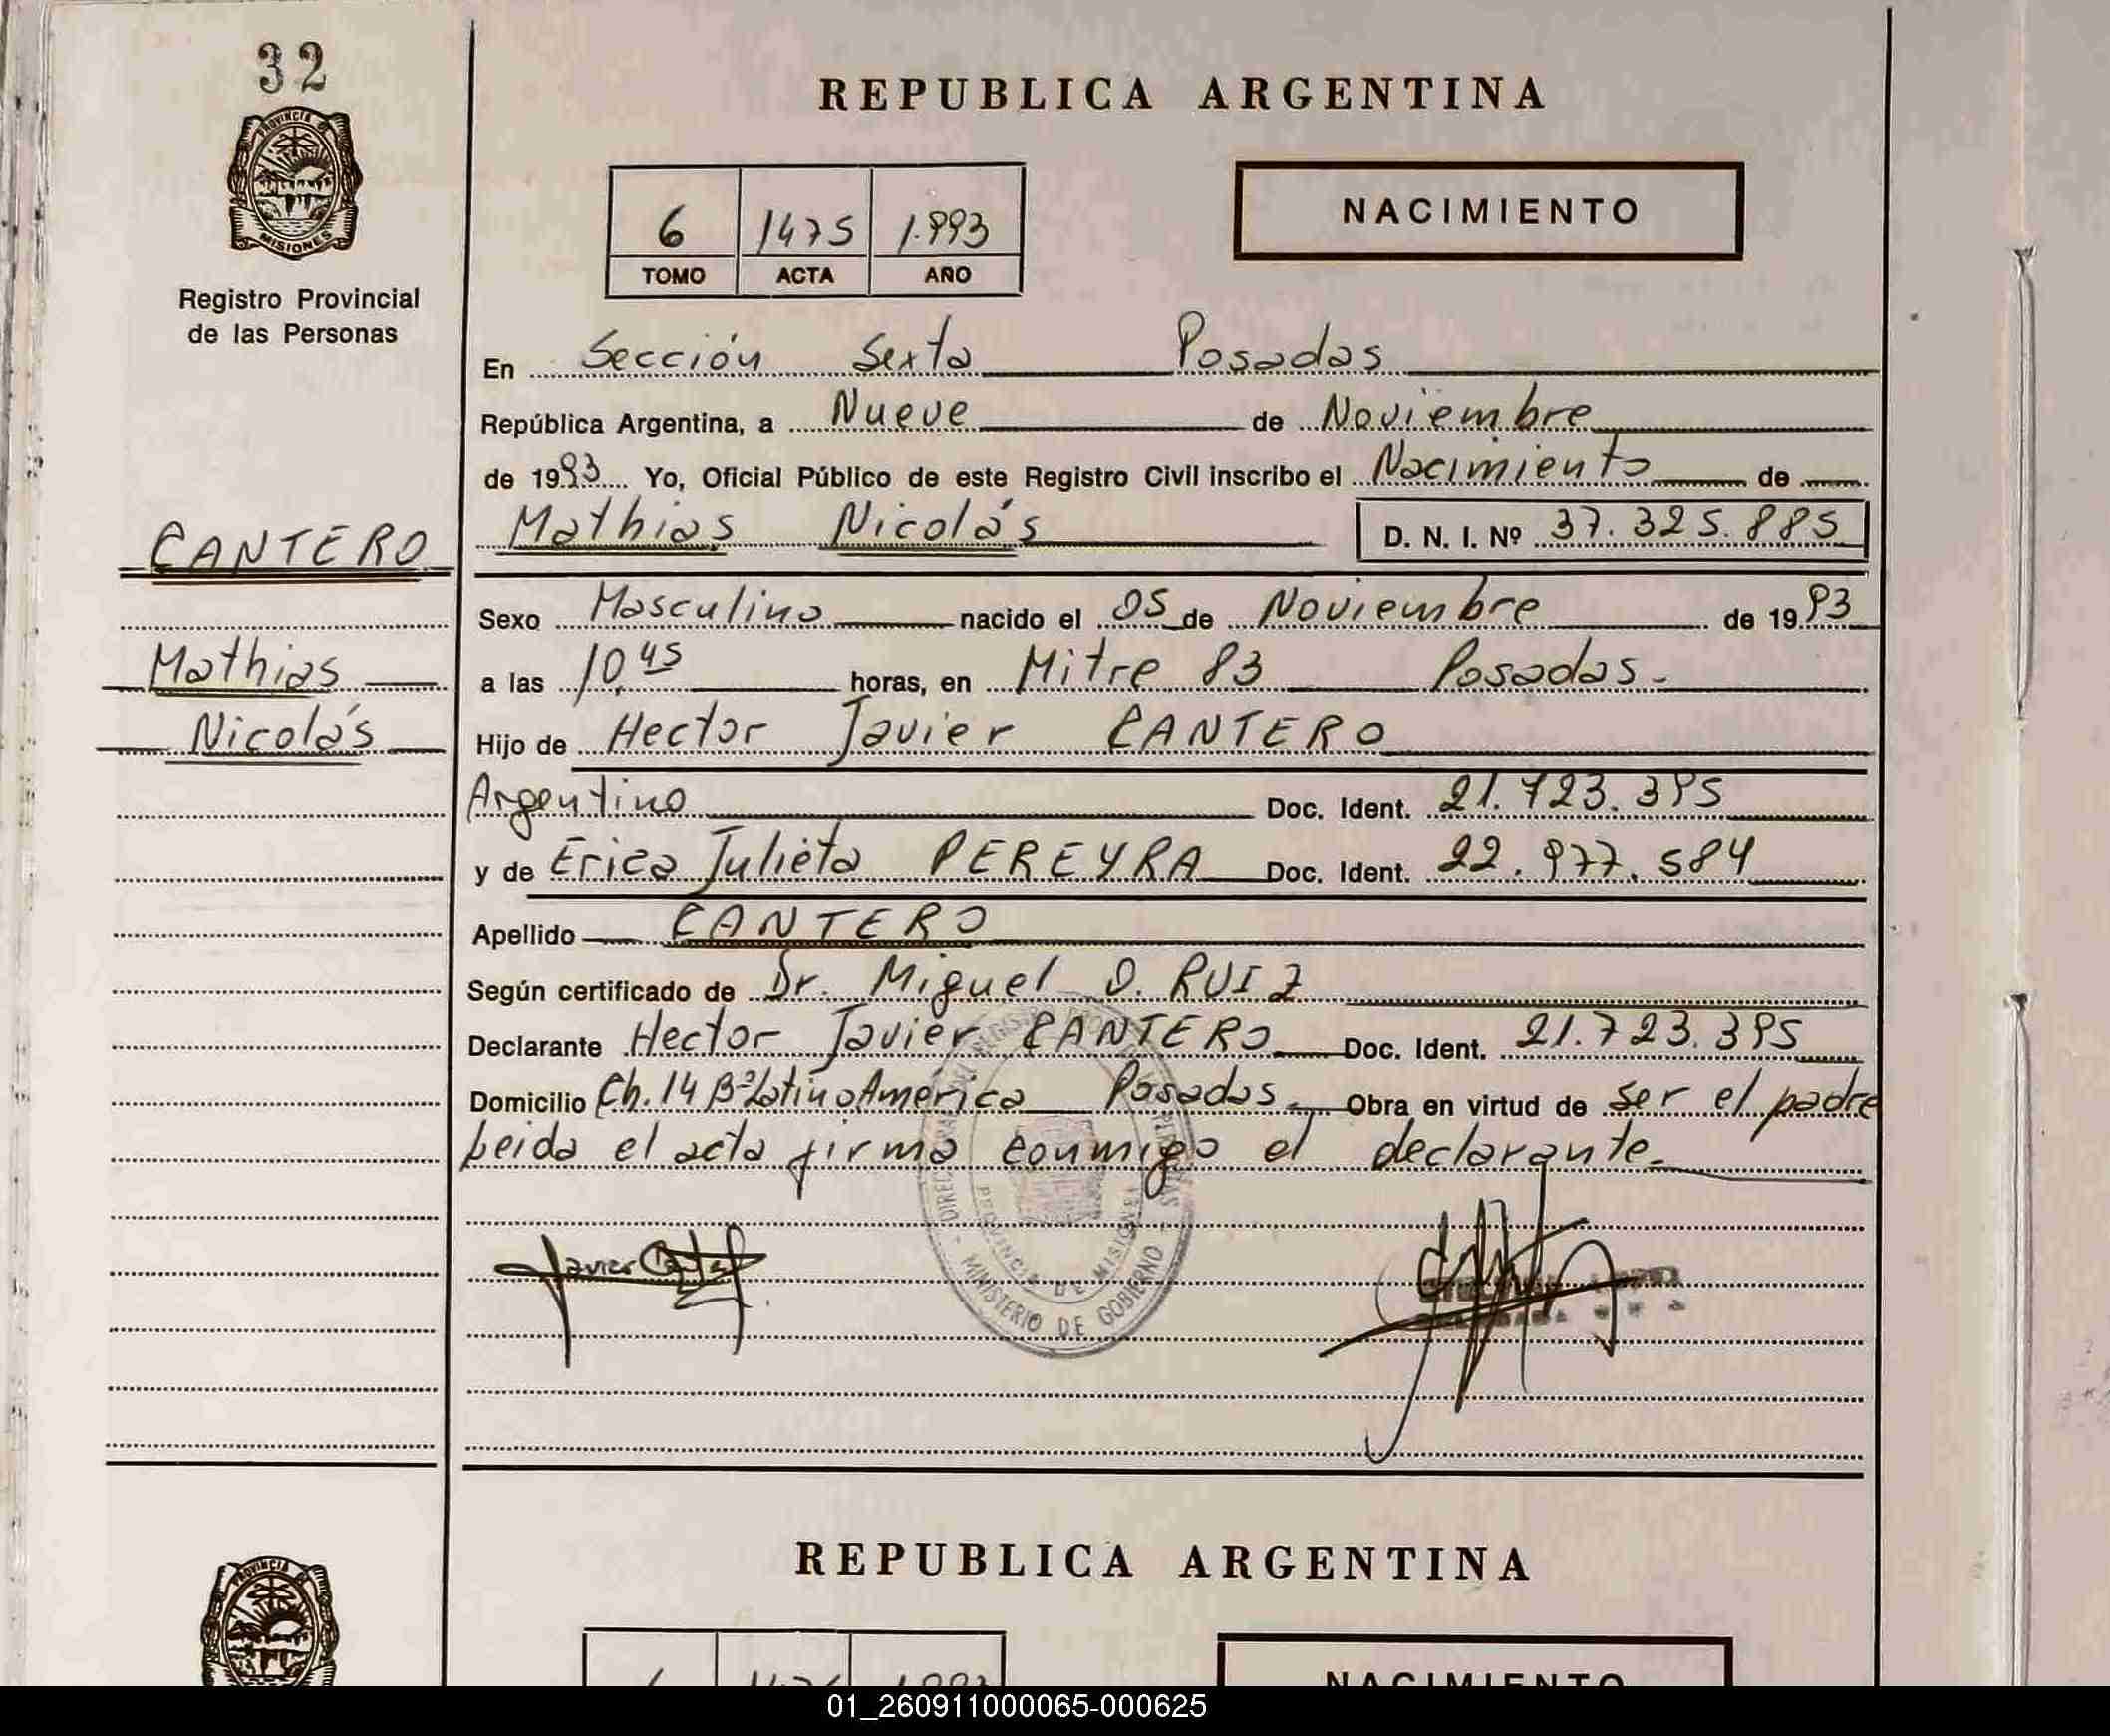 32
PROVINCIA DE
MISIONES
Registro Provincial
de las Personas
CANTERO
Mathias
Nicolás
REPUBLICA ARGENTINA
6 1475 1.993
TOMO ACTA AÑO
NACIMIENTO
En Sección Sexta Posadas
República Argentina, a Nueve de Noviembre
de 1993 Yo, Oficial Público de este Registro Civil inscribo el Nacimiento de
Mathias Nicolás D. N. I. Nº 37.325.885
Sexo Masculino nacido el 05 de Noviembre de 1993
a las 10,45 horas, en Mitre 83 Posadas.
Hijo de Hector Javier CANTERO
Argentino Doc. Ident. 21.723.395
y de Erica Julieta PEREYRA Doc. Ident. 22.977.584
Apellido CANTERO
Según certificado de Dr. Miguel O. RUIZ
Declarante Hector Javier CANTERO Doc. Ident. 21.723.395
Domicilio Ch. 14 Bº Latino América Posadas. Obra en virtud de Ser el padre
Leida el acta firma conmigo el declarante.
Javier
PROVINCIA DE MISIONES
MINISTERIO DE GOBIERNO
PROVINCIA
REPUBLICA ARGENTINA
NACIMIENTO
01_260911000065-000625